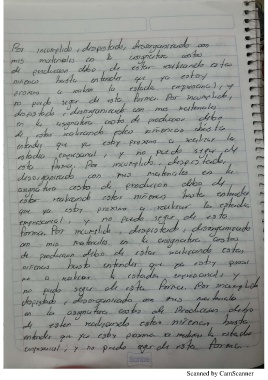 Por incumplido, despistado, desorganizado con
mis materiales en la asignatura costos
de produccion debo de estar realizando estas
mínimo hasta entender que ya estoy
proximo a realizar la estadia empresarial, y
no puedo seguir de esta forma. Por incumplido,
despistado, desorganizado con mis materiales
en la asignatura costos de produccion debo
de estar realizando estas hasta
entender que ya estoy proximo a realizar la
estadia empresarial, y no puedo seguir de
esta forma. Por incumplido, despistado,
desorganizado con mis materiales en la
asignatura costos de produccion debo de
estar realizando estas hasta entender
que ya estoy proximo a realizar la estadia
empresarial, y no puedo seguir de esta
forma. Por incumplido, despistado, desorganizado
con mis materiales en la asignatura costos
de produccion debo de estar realizando estas
hasta entender que ya estoy proximo
a realizar la estadia empresarial, y no
puedo seguir de esta forma. Por incumplido
despistado, desorganizado con mis materiales
en la asignatura costos de Produccion debo
de estar realizando estas hasta
entender que ya estoy proximo a realizar la estadia
empresarial, y no puedo seguir de esta forma.
Scanned by CamScanner